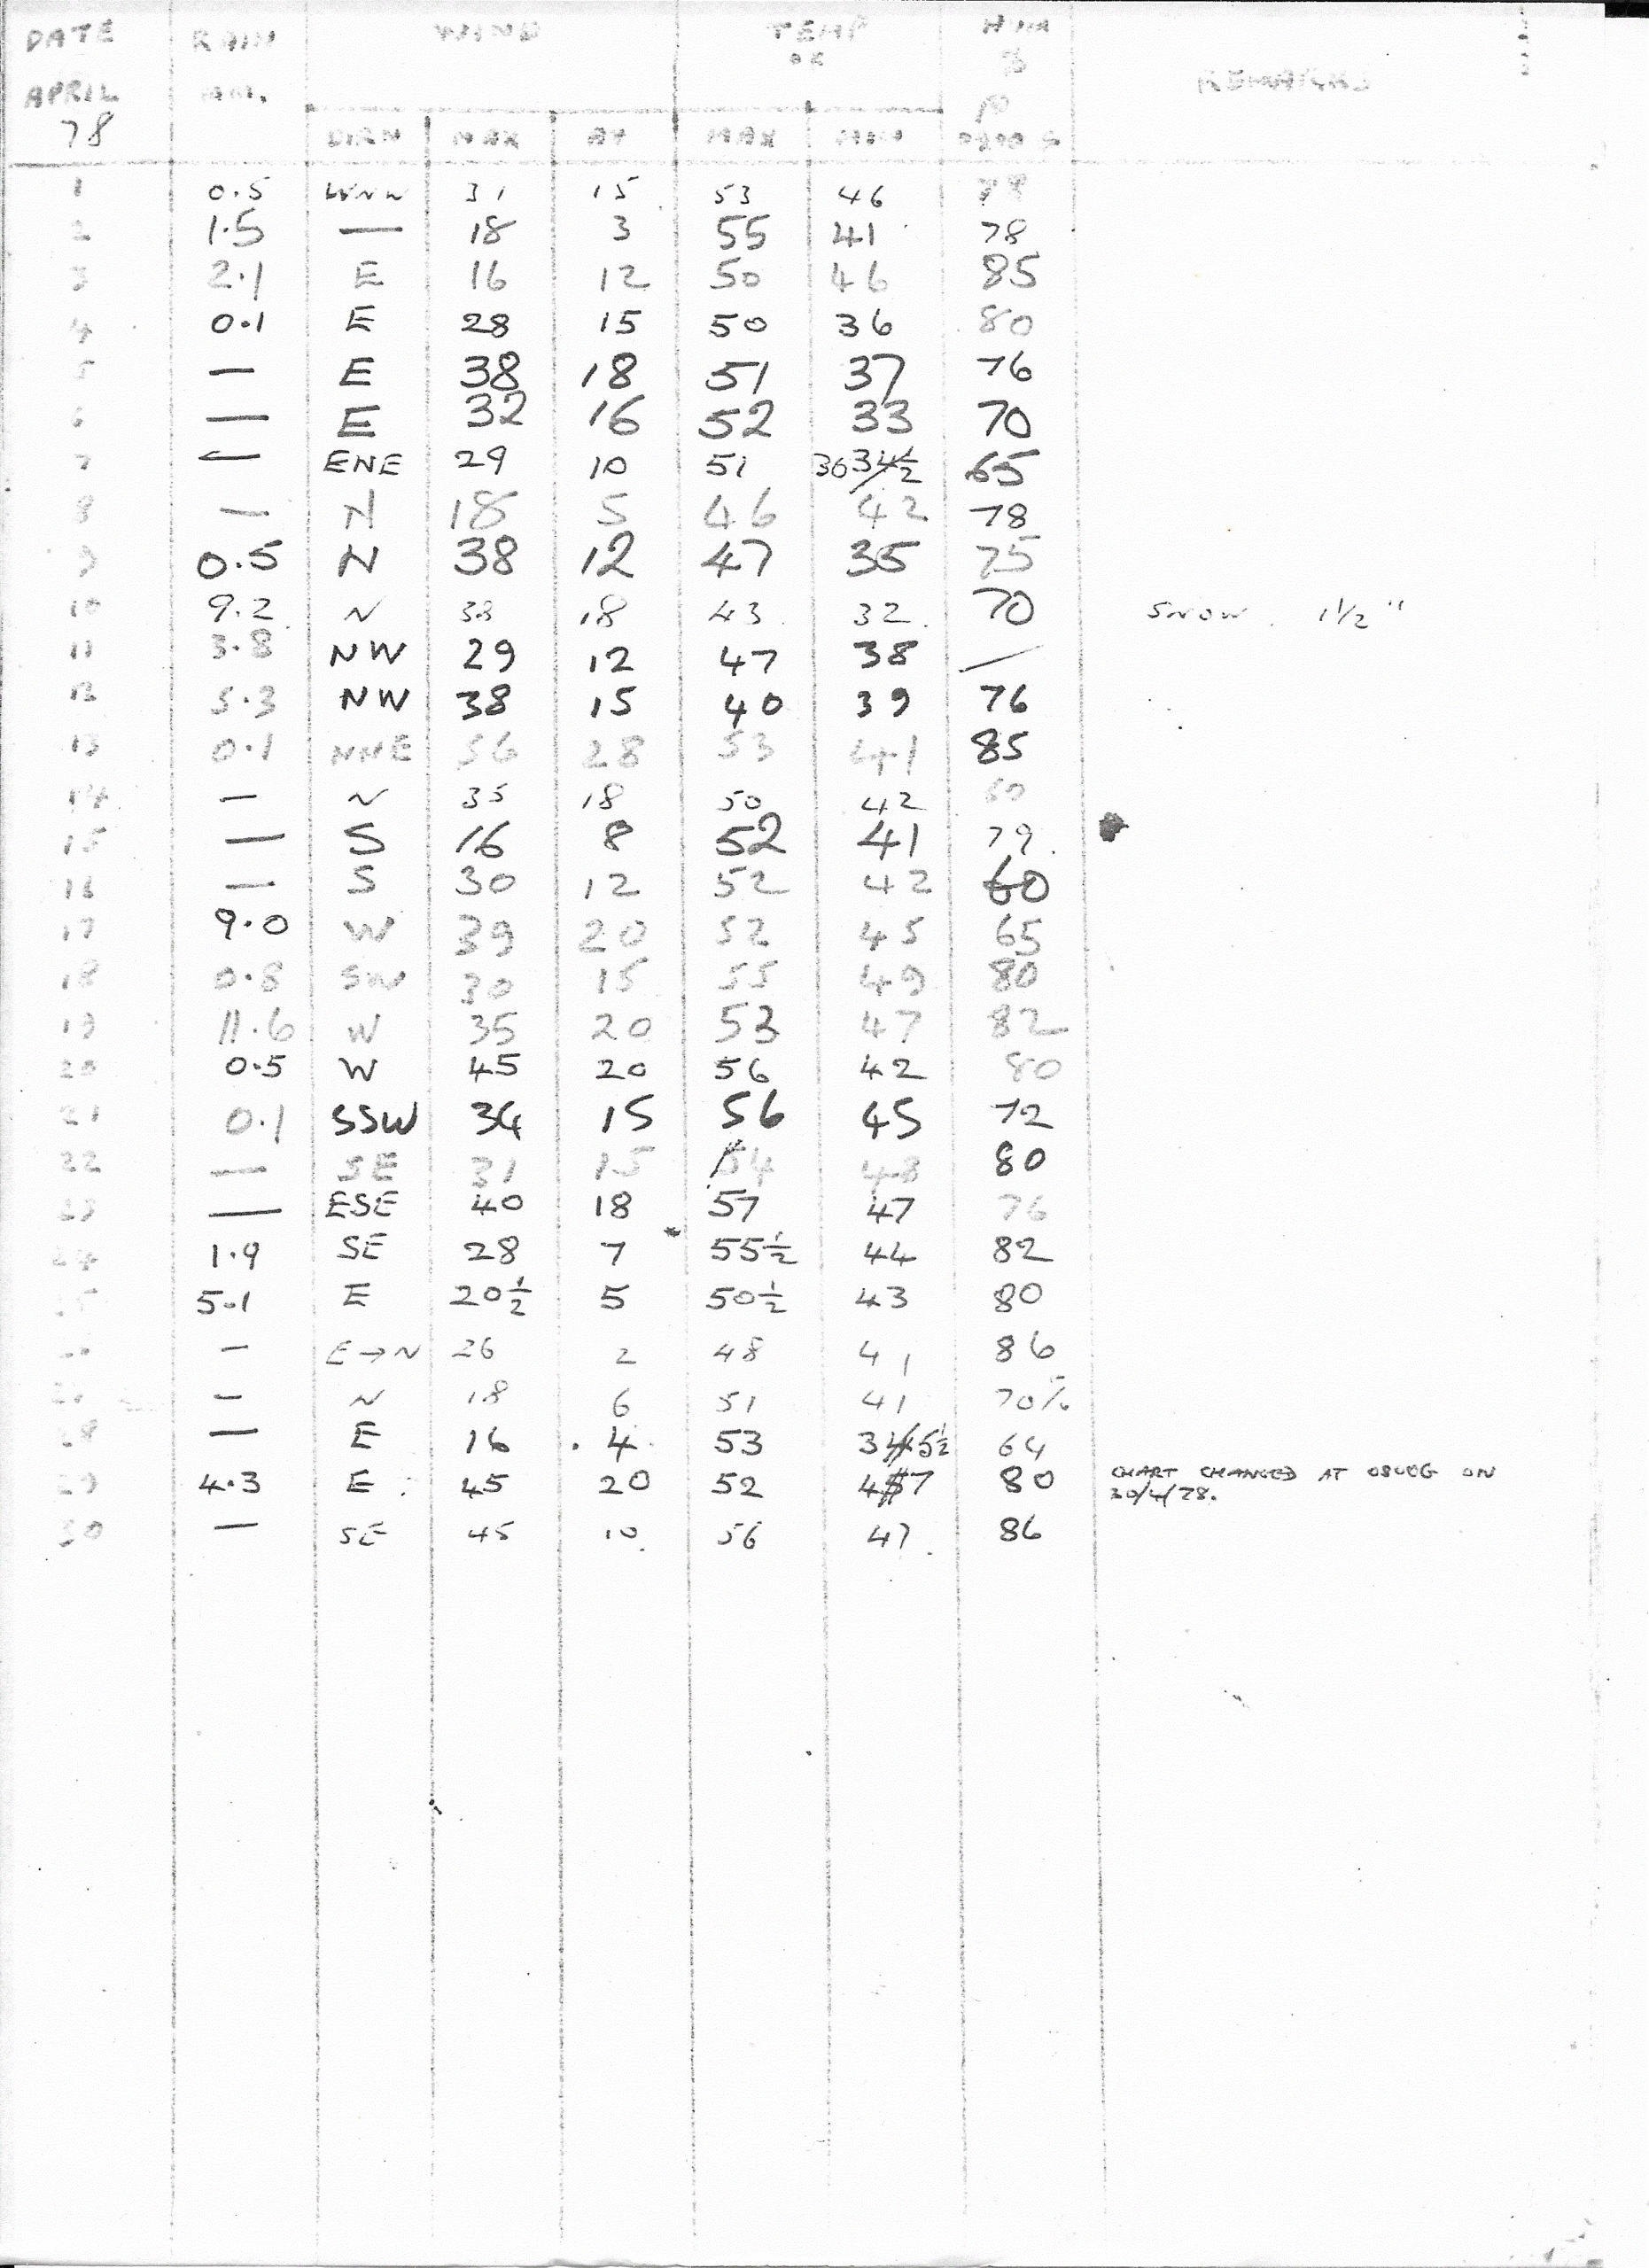 DATE RAIN WIND TEMP HUM
°F %
APRIL MM. REMARKS
78 DIRN MAX AV MAX MIN 0900 G
1 0.5 WNW 31 15 53 46
2 1.5 — 18 3 55 41 78
3 2.1 E 16 12 50 46 85
4 0.1 E 28 15 50 36 80
5 — E 38 18 51 37 76
6 — E 32 16 52 33 70
7 — ENE 29 10 51 36 34½ 65
8 — N 18 5 46 42 78
9 0.5 N 38 12 47 35 75
10 9.2 N 38 18 43 32 70 SNOW. 1½"
11 3.8 NW 29 12 47 38 /
12 5.3 NW 38 15 40 39 76
13 0.1 NNE 56 28 53 41 85
14 — N 35 18 50 42
15 — S 16 8 52 41 79
16 — S 30 12 52 42 60
17 9.0 W 39 20 52 45 65
18 0.8 SW 30 15 55 49 80
19 11.6 W 35 20 53 47 82
20 0.5 W 45 20 56 42 80
21 0.1 SSW 34 15 56 45 72
22 — SE 31 15 54 48 80
23 — ESE 40 18 57 47 76
24 1.9 SE 28 7 55½ 44 82
25 5.1 E 20½ 5 50½ 43 80
— E→N 26 2 48 41 86
— N 18 6 51 41 70%
28 — E 16 4 53 35½ 64
29 4.3 E 45 20 52 47 80 CHART CHANGED AT 0800G ON
30/4/78.
30 — SE 45 10 56 47 86